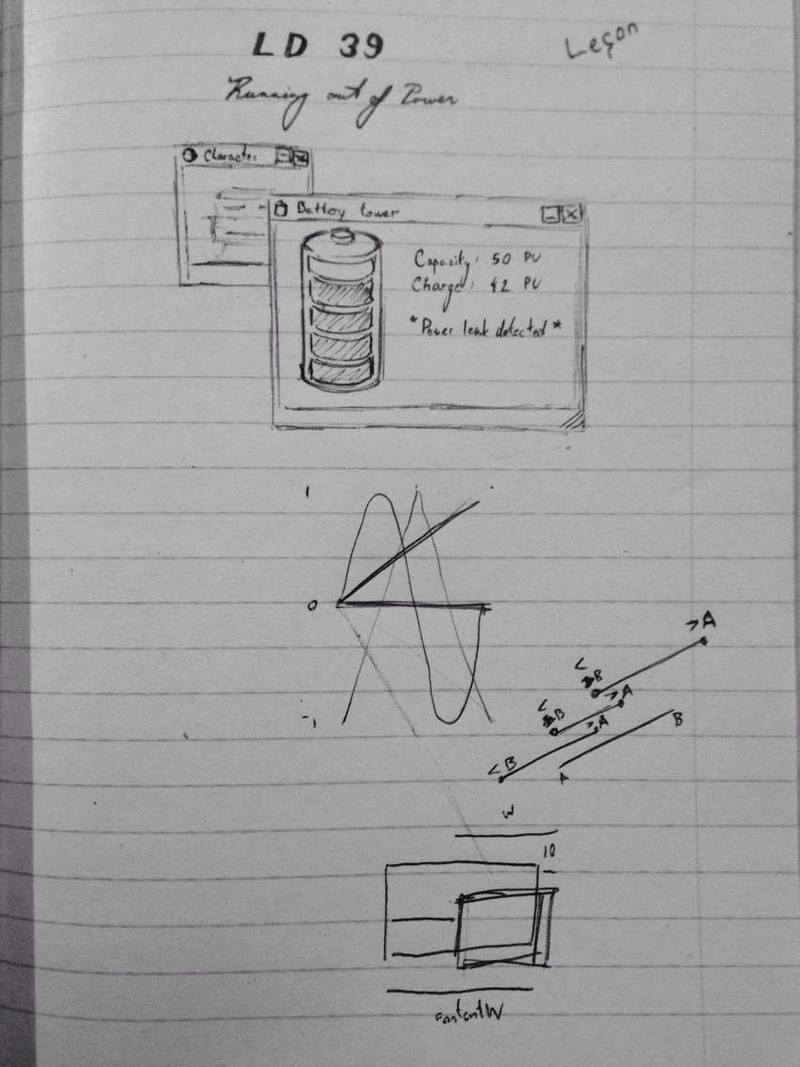 LD 39
Leçon
Running out of Power
Character
Battery tower
Capacity: 50 PU
Charge: 42 PU
*Power leak detected*
1
0
-1
>A
<B
>A
<B
>A
<B
B
A
W
10
contentW